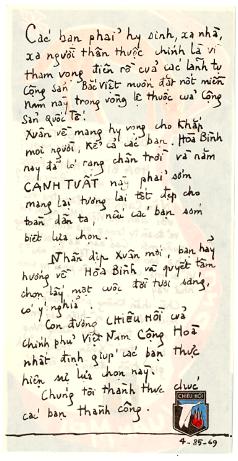 Các bạn phải hy sinh, xa nhà,
xa người thân thuộc chính là vì
tham vọng điên rồ của các lãnh tụ
Cộng sản Bắc Việt muốn đặt nốt miền
Nam này trong vòng lệ thuộc của Cộng
Sản Quốc Tế!
Xuân về mang hy vọng cho khắp
mọi người, kể cả các bạn. Hòa Bình
nay đã ló rạng chân trời và năm
CANH TUẤT này phải sớm
mang lại tương lai tốt đẹp cho
toàn dân ta, nếu các bạn sớm
biết lựa chọn.
Nhân dịp Xuân mới, bạn hãy
hướng về Hòa Bình và quyết tâm
chọn lấy một cuộc đời tươi sáng,
có ý nghĩa.
Con đường CHIÊU HỒI của
chính phủ Việt Nam Cộng Hoà
nhất định giúp các bạn thực
hiện sự lựa chọn này.
Chúng tôi thành thực chúc
các bạn thành công.
CHIÊU HỒI
4-85-69